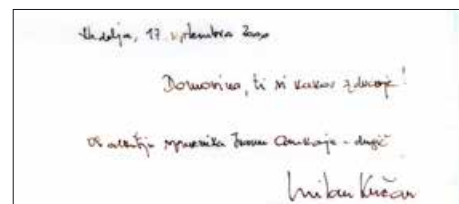 Nedelja, 17. septembra 2000
Domovina, ti si kakor zdravje!
Ob spomenika Ivana Cankarja - drugič
Milan Kučan